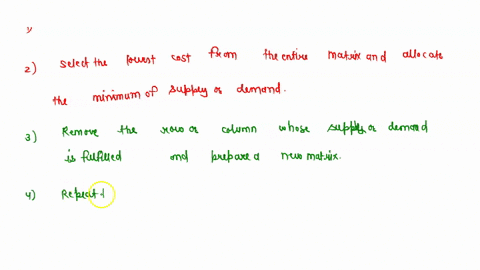 2) Select the lowest cost from the entire matrix and allocate
the minimum of supply or demand.
3) Remove the row or column whose supply or demand
is fulfilled and prepare a new matrix.
4) Repeat